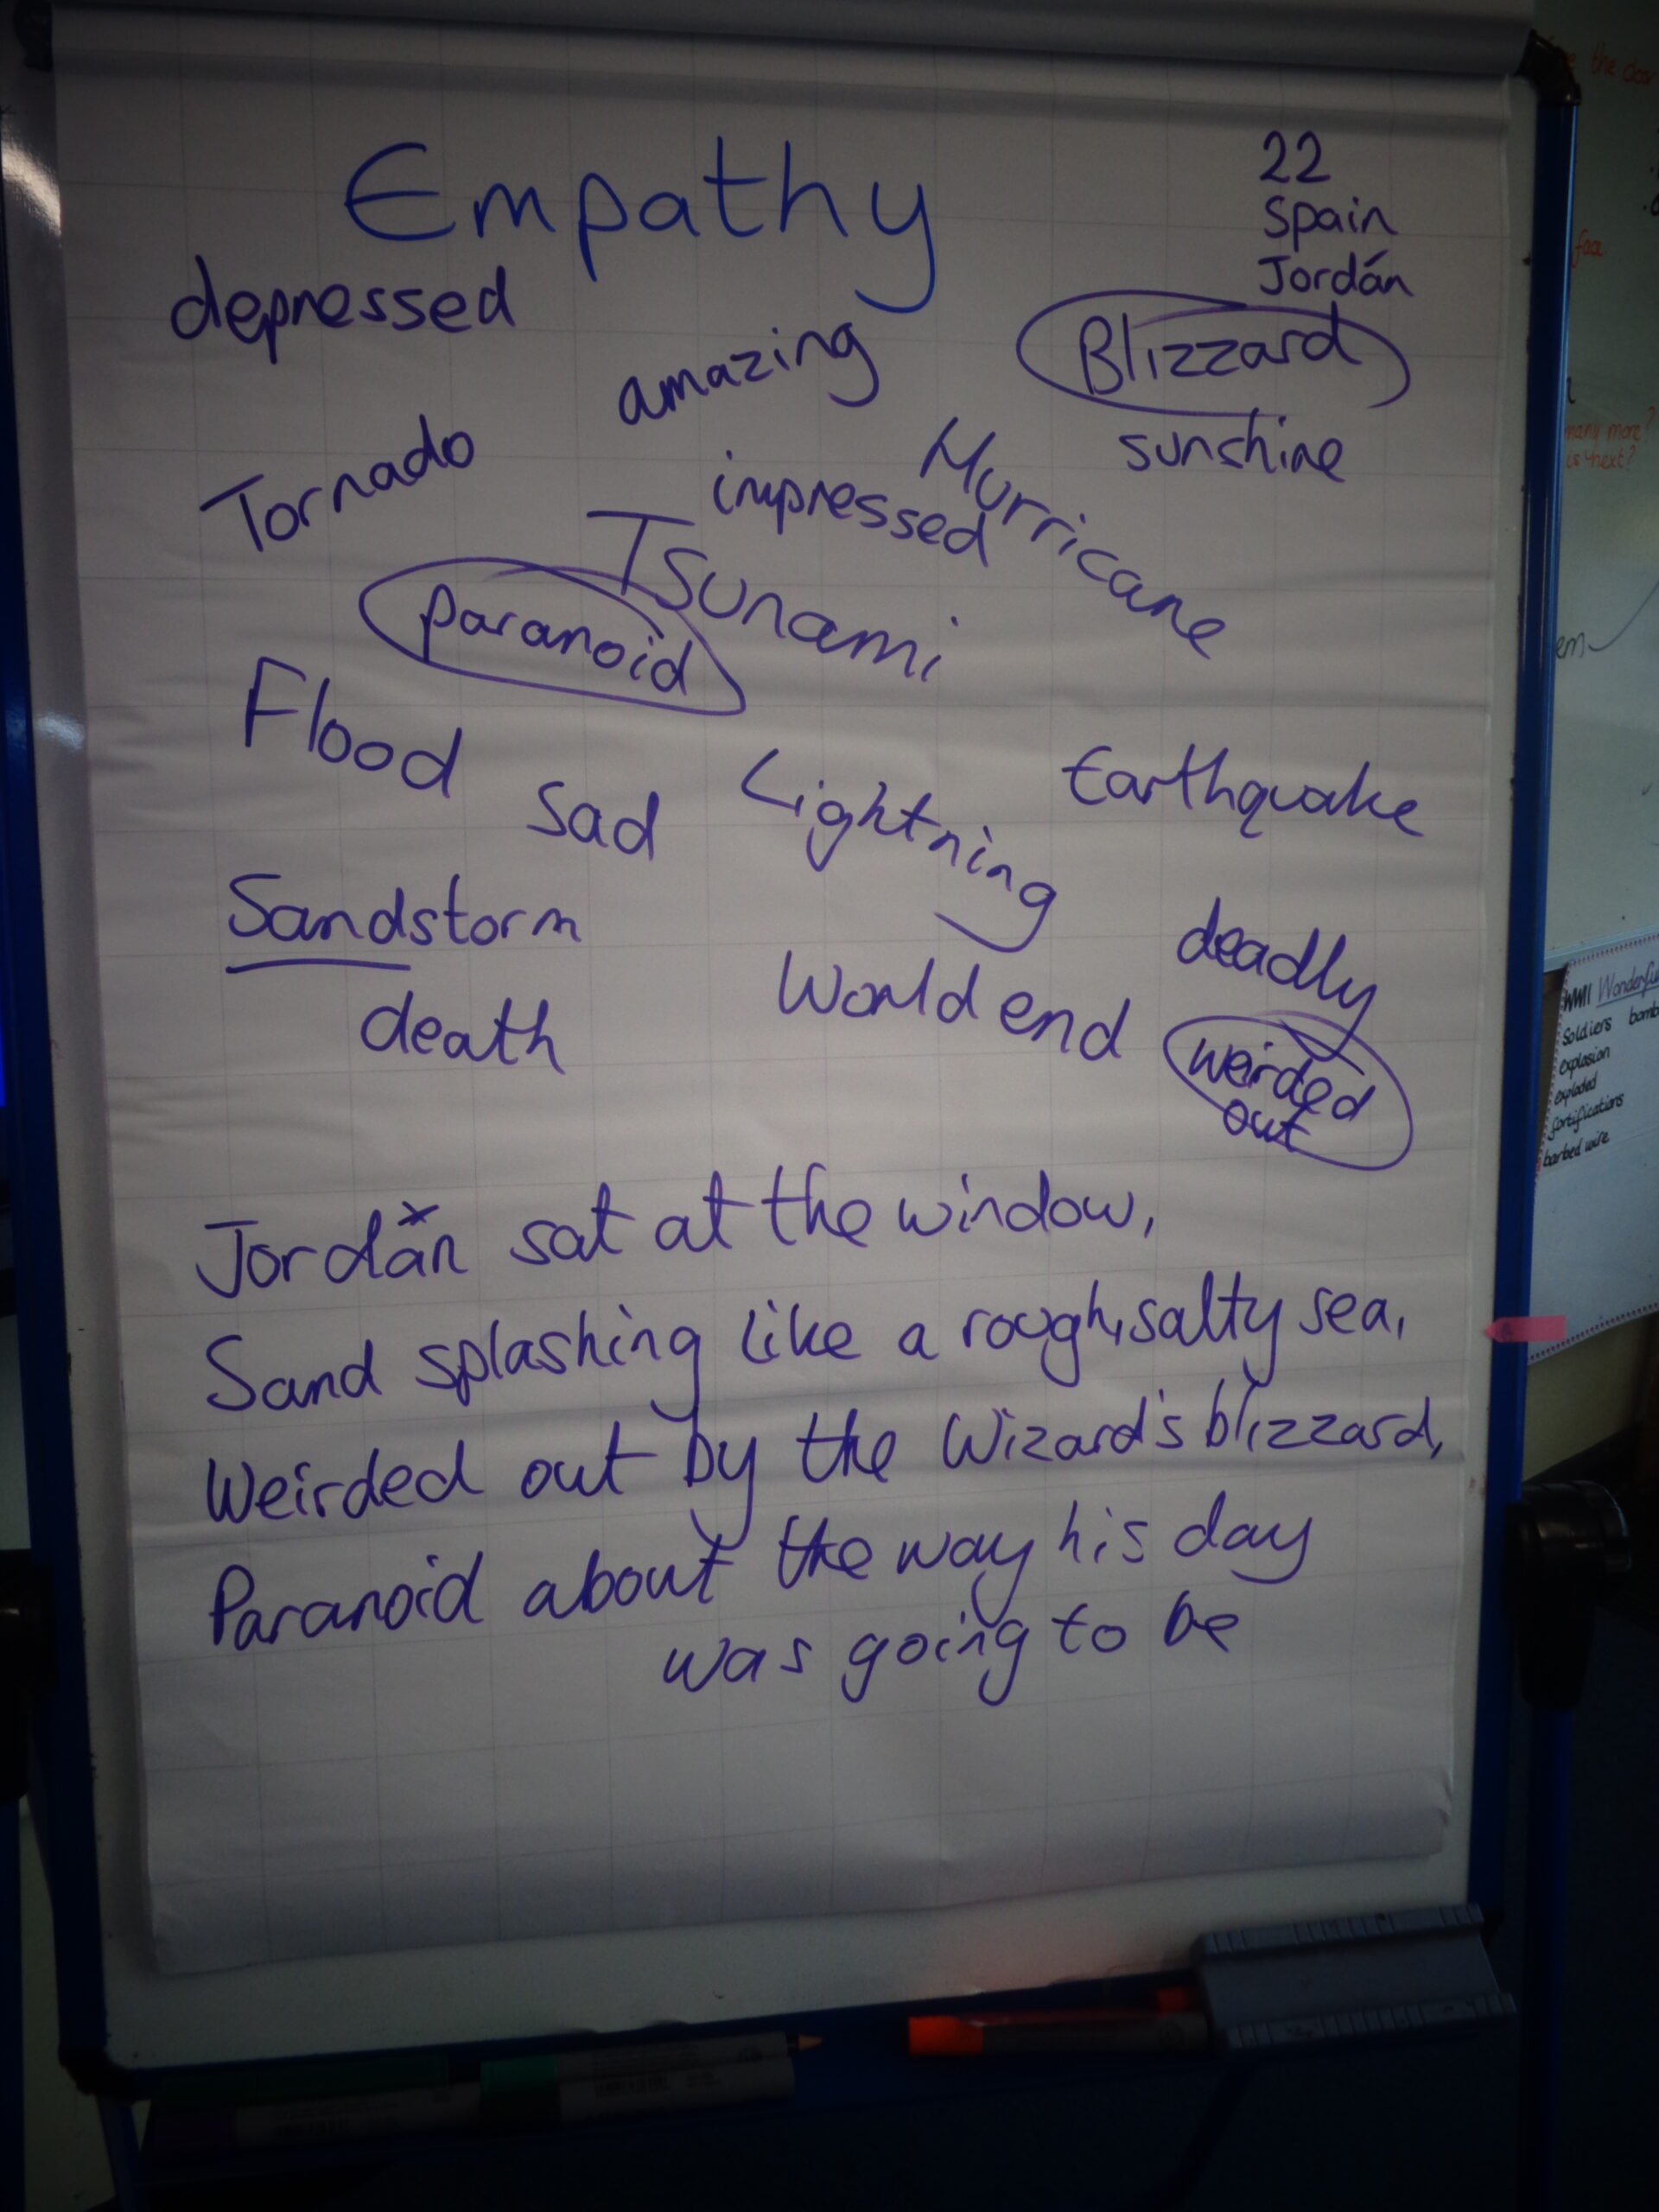 Empathy
22
Spain
Jordán
depressed
amazing
Blizzard
sunshine
Tornado
impressed
Hurricane
Tsunami
paranoid
Flood
Sad
Lightning
Earthquake
Sandstorm
deadly
death
World end
weirded
out
Jordán sat at the window,
Sand splashing like a rough, salty sea,
Weirded out by the Wizard's blizzard,
Paranoid about the way his day
was going to be
the door
face
many more?
is next?
WWII Wonderful
Soldiers bomb
explosion
exploded
fortifications
barbed wire